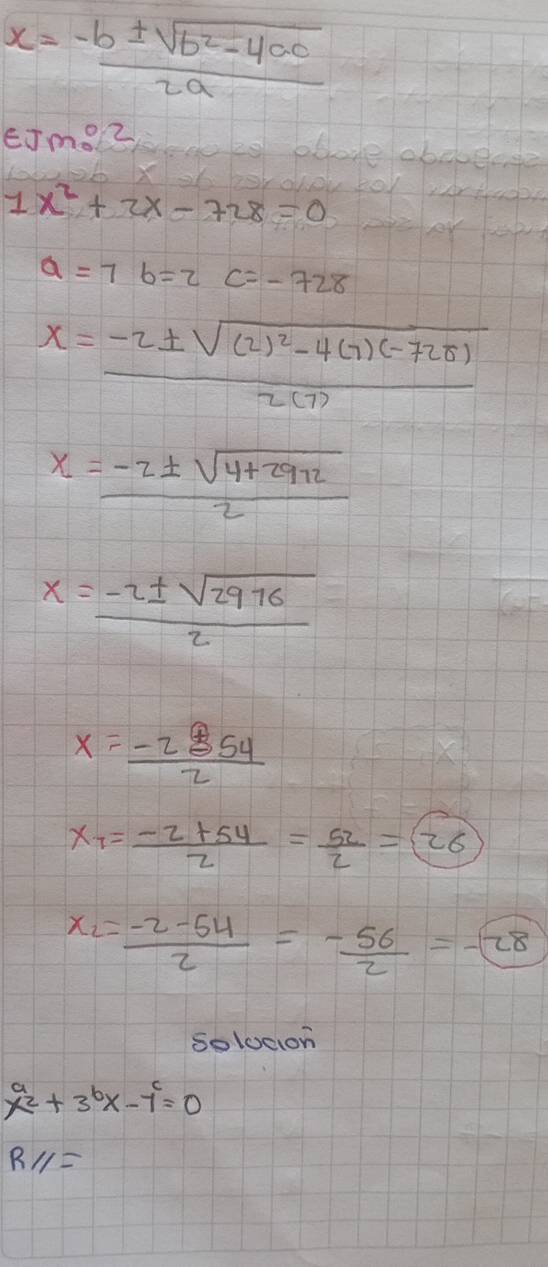 x = -b ± √b² - 4ac / 2a
EJm: 2
1x² + 2x - 728 = 0
a = 1 b = 2 c = - 728
x = -2 ± √(2)² - 4(1)(-728) / 2(1)
x = -2 ± √4 + 2912 / 2
x = -2 ± √2916 / 2
x = -2 ± 54 / 2
x₁ = -2 + 54 / 2 = 52 / 2 = 26
x₂ = -2 - 54 / 2 = - 56 / 2 = - 28
Solución
a b c
x² + 3x - 1 = 0
R// =